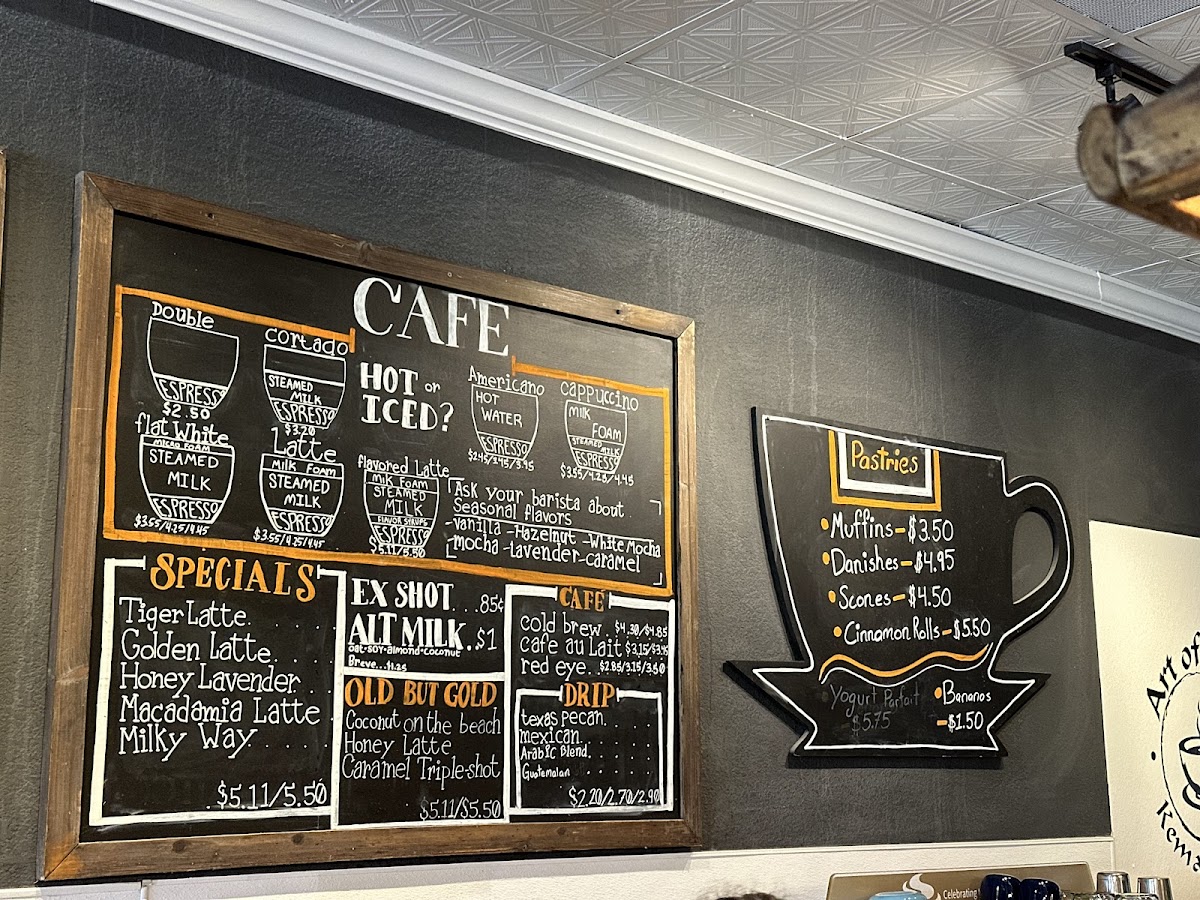 CAFE
Double
ESPRESSO
$2.50
cortado
STEAMED
MILK
ESPRESSO
$3.20
HOT or
ICED?
Americano
HOT
WATER
ESPRESSO
$2.45/3.45/3.95
cappuccino
MILK
FOAM
STEAMED
MILK
ESPRESSO
$3.55/4.28/4.45
flat White
MICRO FOAM
STEAMED
MILK
ESPRESSO
$3.55/4.25/4.45
Latte
MILK FOAM
STEAMED
MILK
ESPRESSO
$3.55/4.25/4.45
flavored Latte
MILK FOAM
STEAMED
MILK
FLAVOR SYRUPS
ESPRESSO
$5.11/5.50
Ask your barista about
Seasonal flavors
-vanilla -Hazelnut -White Mocha
-mocha -lavender-caramel
SPECIALS
Tiger Latte.
Golden Latte.
Honey Lavender . .
Macadamia Latte .
Milky Way. . . . .
. $5.11/5.50
EX SHOT...85¢
ALT MILK.$1
oat-soy-almond-coconut
Breve...$1.25
OLD BUT GOLD
Coconut on the beach
Honey Latte
Caramel Triple-shot
$5.11/$5.50
CAFE
cold brew $4.30/$4.85
cafe au Lait $3.15/$3.45
red eye.. $2.85/3.15/3.50
DRIP
texas pecan. . . .
mexican. . . . .
Arabic Blend. . . . .
Guatemalan . . . .
$2.20/2.70/2.90
Pastries
•Muffins-$3.50
•Danishes-$4.95
•Scones-$4.50
•Cinnamon Rolls-$5.50
•Yogurt Parfait
$5.75
•Bananas
-$1.50
Art of
Kema
Celebrating